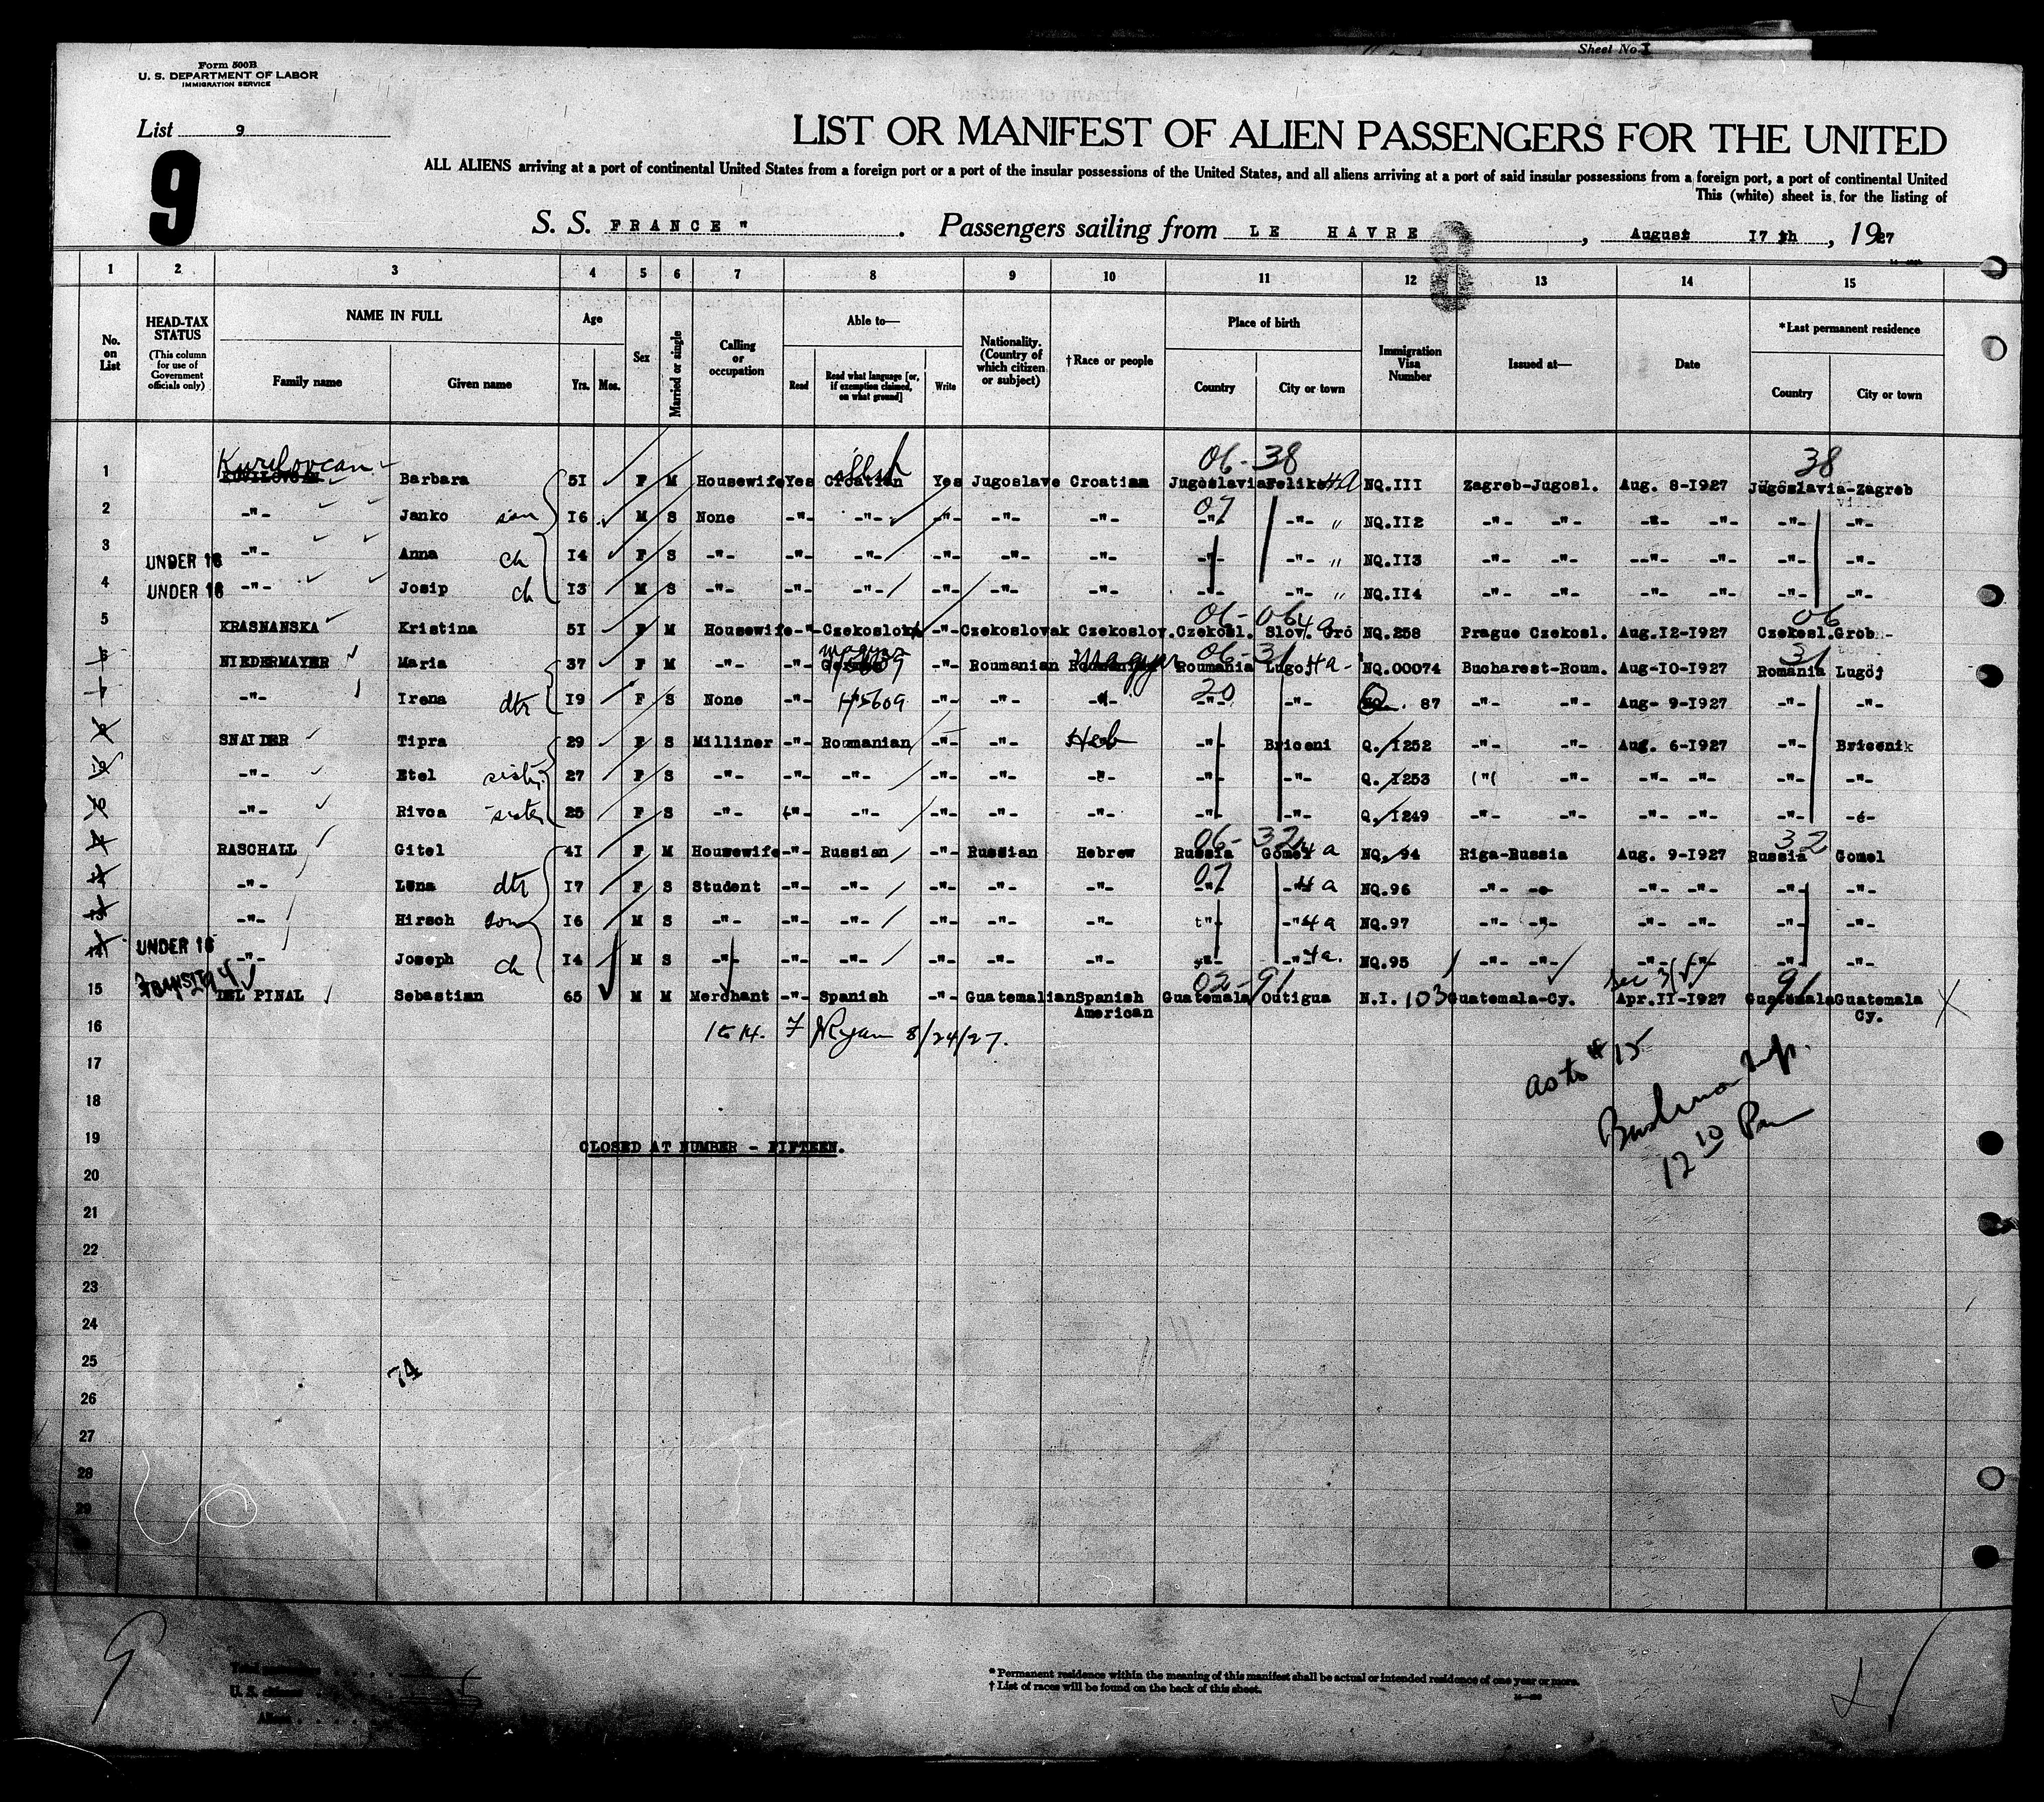 Sheet No. I
Form 500B
U. S. DEPARTMENT OF LABOR
IMMIGRATION SERVICE
List 9
9
LIST OR MANIFEST OF ALIEN PASSENGERS FOR THE UNITED
ALL ALIENS arriving at a port of continental United States from a foreign port or a port of the insular possessions of the United States, and all aliens arriving at a port of said insular possessions from a foreign port, a port of continental United
This (white) sheet is for the listing of
S. S. FRANCE " . Passengers sailing from LE HAVRE , August 17 th , 1927
1 2 3 4 5 6 7 8 9 10 11 12 13 14 15
No. on List
HEAD-TAX STATUS
(This column for use of Government officials only)
NAME IN FULL
Family name Given name
Age
Yrs. Mos.
Sex
Married or single
Calling or occupation
Able to—
Read Read what language [or, if exemption claimed, on what ground] Write
Nationality. (Country of which citizen or subject)
†Race or people
Place of birth
Country City or town
Immigration Visa Number
Issued at—
Date
*Last permanent residence
Country City or town
Kurilovcan 06-38 38
1 KUVILOVCAN Barbara 5I F M Housewife Yes Croatian Yes Jugoslave Croatian Jugoslavia Velike HA NQ.III Zagreb-Jugosl. Aug. 8-I927 Jugoslavia-Zagreb
2 -"- Janko son I6 M S None -"- -"- -"- -"- -"- 07 -"- -"- " NQ.II2 -"- -"- -"- -"- -"- -"-
3 UNDER 16 -"- Anna ch I4 F S -"- -"- -"- -"- -"- -"- -"- -"- " NQ.II3 -"- -"- -"- -"- -"- -"-
4 UNDER 16 -"- Josip ch I3 M S -"- -"- -"- -"- -"- -"- -"- -"- " NQ.II4 -"- -"- -"- -"- -"- -"-
06-06 06
5 KRASNANSKA Kristina 5I F M Housewife -"- Czekoslovk -"- Czekoslovak Czekoslov. Czekosl. Slov. Gró NQ.258 Prague Czekosl. Aug.I2-I927 Czekosl. Grob-
Magyar 06-31 31
6 NIEDERMAYER Maria 37 F M -"- -"- German -"- Roumanian Magyar Roumania Lugoj Ha NQ.00074 Bucharest-Roum. Aug-IO-I927 Romania Lugoj
7 -"- Irena dtr I9 F S None -"- -"- -"- -"- 20 -"- -"- 87 -"- -"- Aug- 9-I927 -"- -"-
8 SNAIDER Tipra 29 F S Milliner -"- Roumanian -"- -"- Heb -"- Briceni Q. I252 -"- -"- Aug. 6-I927 -"- Bricenik
-"- Etel sister 27 F S -"- -"- -"- -"- -"- -"- -"- -"- Q. I253 -"- -"- -"- -"- -"- -"-
10 -"- Rivca sister 25 F S -"- -"- -"- -"- -"- -"- -"- -"- Q. I249 -"- -"- -"- -"- -"-
06-32 32
RASCHALL Gitel 4I F M Housewife -"- Russian -"- Russian Hebrew Russia Gomel Ha NQ. 94 Riga-Russia Aug. 9-I927 Russia Gomel
12 -"- Lena dtr I7 F S Student -"- -"- -"- -"- -"- 07 -"- Ha NQ.96 -"- -"- -"- -"- -"- -"-
13 -"- Hirsch son I6 M S -"- -"- -"- -"- -"- -"- -"- -"- Ha NQ.97 -"- -"- -"- -"- -"- -"-
14 UNDER 16 -"- Joseph ch I4 M S -"- -"- -"- -"- -"- -"- -"- -"- Ha. NQ.95 -"- -"- -"- -"- -"- -"-
TRANSIT 02-91 Sec 3(3) 91
15 DEL PINAL Sebastian 65 M M Merchant -"- Spanish -"- Guatemalian Spanish American Guatemala Outigua N.I. 103 Guatemala-Cy. Apr.II-I927 Guatemala Guatemala Cy.
16 1 to 14. F Ryan 8/24/27.
17
as to #15
18
12 10 Pm
19 CLOSED AT NUMBER - FIFTEEN.
20
21
22
23
24
25
74
26
27
28
29
9
Total passengers . . . .
U. S. citizens . . . .
Aliens . . . .
* Permanent residence within the meaning of this manifest shall be actual or intended residence of one year or more.
† List of races will be found on the back of this sheet.